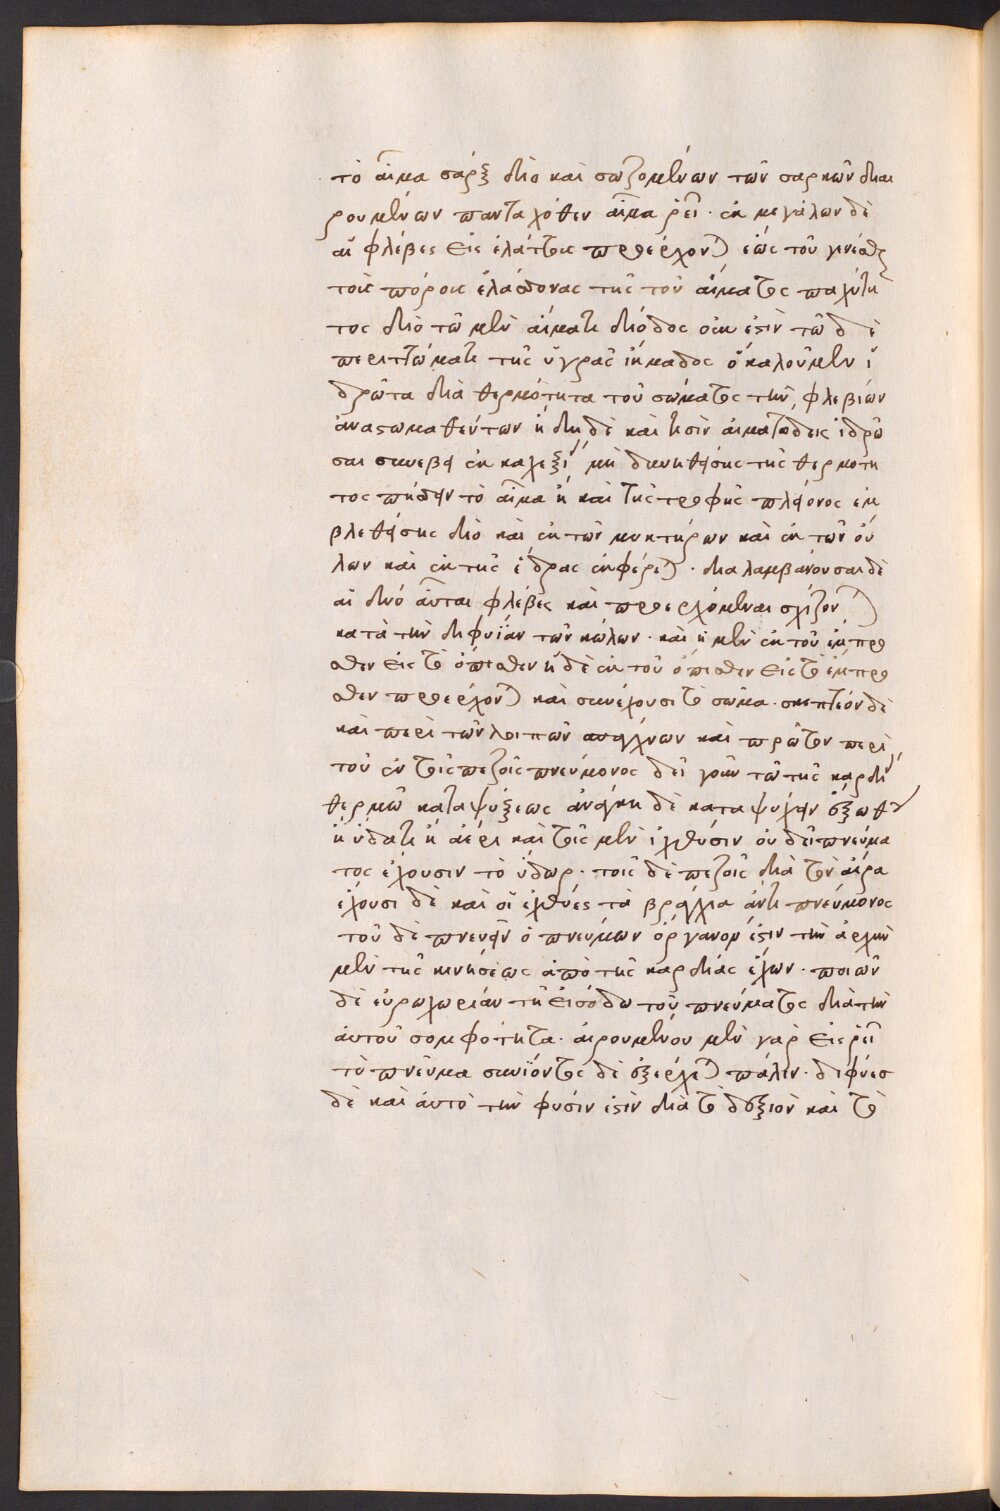 τὸ αἷμα σάρξ διὸ καὶ σωζομένων τῶν σαρκῶν διαι
ρουμένων πανταχόθεν αἷμα ῥεῖ · ἐκ μεγάλων δὲ
αἱ φλέβες εἰς ἐλάττους προέρχονται ἕως τοῦ γενέσθαι
τοὺς πόρους ἐλάσσονας τῆς τοῦ αἵματος παχύτη
τος διὸ τῶ μὲν αἵματι δίοδος οὐκ ἐστὶν τῶ δὲ
περιττώματι τῆς ὑγρᾶς ἰκμάδος ὃ καλοῦμεν ἱ
δρῶτα διὰ θερμότητα τοῦ σώματος τῶν φλεβίων
ἀναστομωθέντων ἤδη δὲ καὶ τισὶν αἱματώδεις ἱδρῶ
σαι συνέβη ἐκ καχεξίας μὴ δυνηθείσης τῆς θερμότη
τος πέσσειν τὸ αἷμα ἢ καὶ τῆς τροφῆς πλείονος ἐμ
βληθείσης διὸ καὶ ἐκ τῶν μυκτήρων καὶ ἐκ τῶν οὔ
λων καὶ ἐκ τῆς ἕδρας ἐκφέρεται · διαλαμβάνουσαι δὲ
αἱ δύο αὗται φλέβες καὶ προερχόμεναι σχίζονται
κατὰ τὴν διφυΐαν τῶν κώλων · καὶ ἡ μὲν ἐκ τοῦ ἔμπρο
σθεν εἰς τὸ ὄπισθεν ἡ δὲ ἐκ τοῦ ὄπισθεν εἰς τὸ ἔμπρο
σθεν προέρχονται καὶ συνέχουσι τὸ σῶμα · σκεπτέον δὲ
καὶ περὶ τῶν λοιπῶν σπλάχνων καὶ πρῶτον περὶ
τοῦ ἐν τοῖς πεζοῖς πνεύμονος δεῖ γοῦν τῶ τῆς καρδίας
θερμῶ καταψύξεως ἀνάγκη δὲ καταψύχειν ἔξωθεν
ἢ ὕδατι ἢ ἀέρι καὶ τοῖς μὲν ἰχθύσιν οὐ δεῖ πνεύμα
τος ἔχουσιν τὸ ὕδωρ · τοῖς δὲ πεζοῖς διὰ τὸν ἀέρα
ἔχουσι δὲ καὶ οἱ ἰχθύες τὰ βράγχια ἀντὶ πνεύμονος
τοῦ δὲ πνεῖν ὁ πνεύμων ὄργανον ἐστὶν τὴν ἀρχὴν
μὲν τῆς κινήσεως ἀπὸ τῆς καρδίας ἔχων · ποιῶν
δὲ εὐρυχωρίαν τῆ εἰσόδω τοῦ πνεύματος διὰ τὴν
αὐτοῦ σομφότητα · αἰρουμένου μὲν γὰρ εἰσρεῖ
τὸ πνεῦμα συνιόντος δὲ ἐξέρχεται πάλιν · διφυὲς
δὲ καὶ αὐτὸ τὴν φύσιν ἐστὶν διὰ τὸ δεξιὸν καὶ τὸ